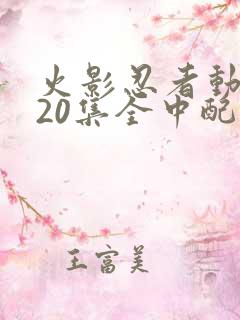 火影忍者動
20集全中配
王富美